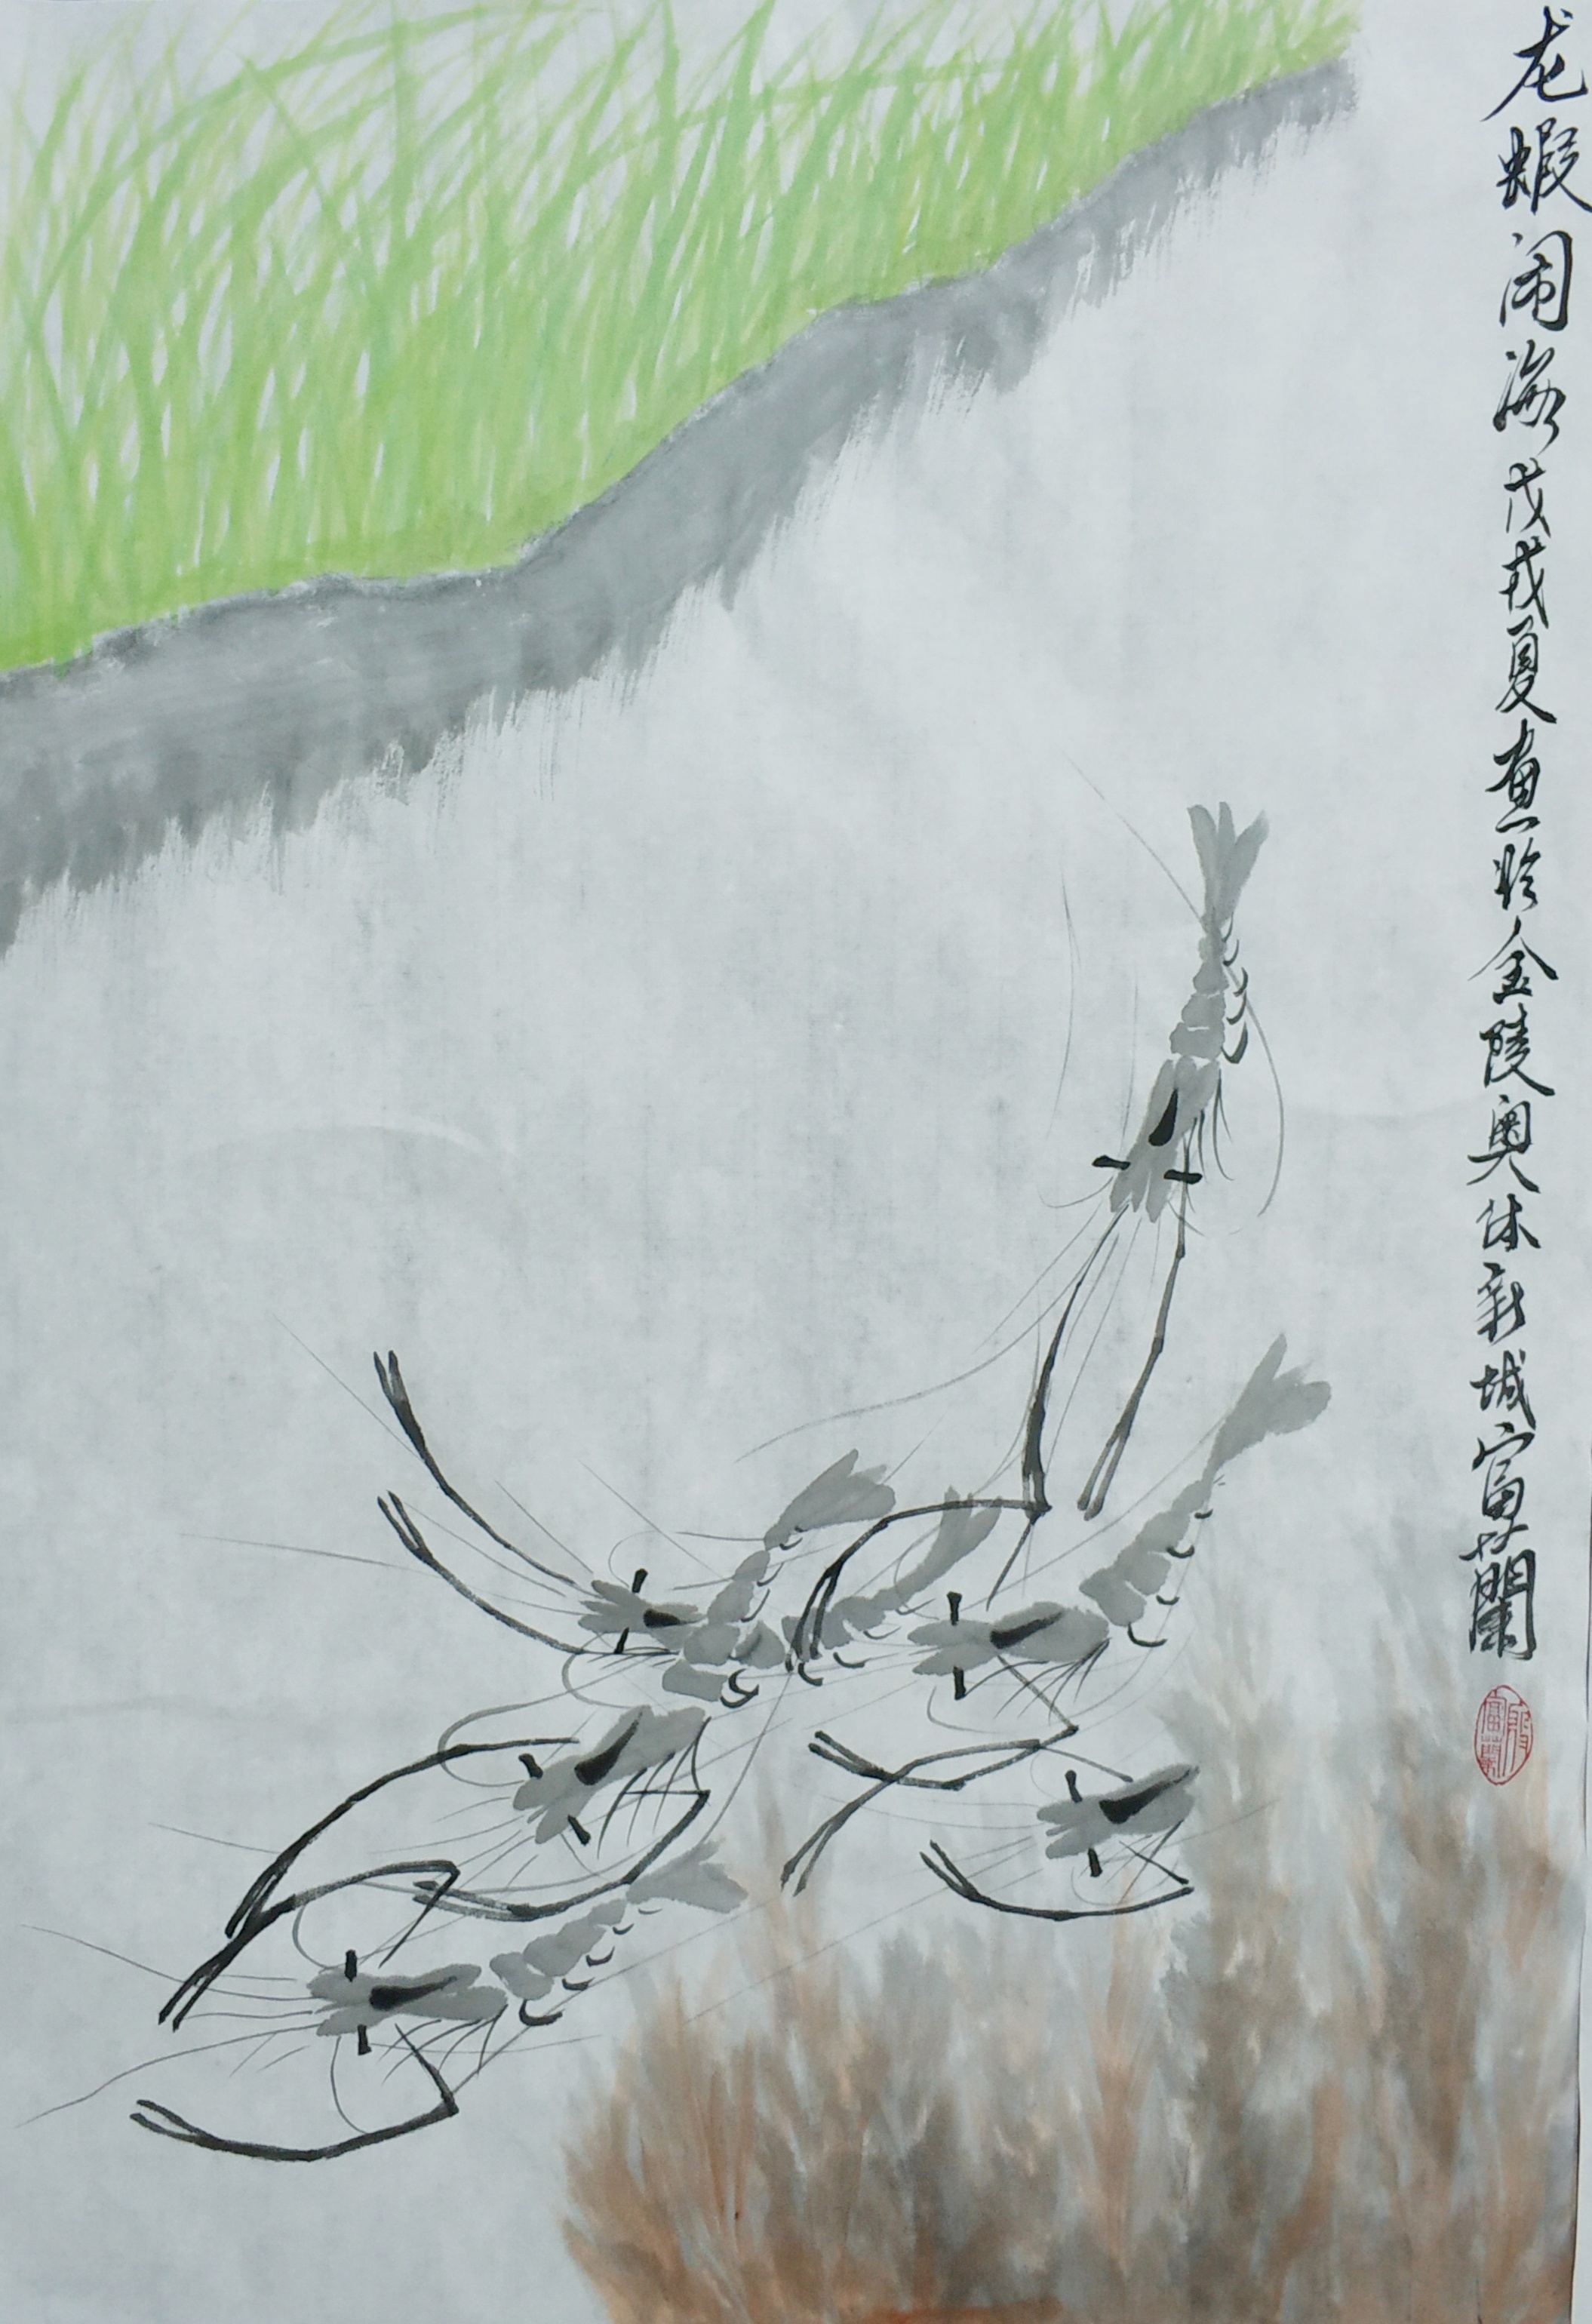 龙蝦闹海戊戌夏画於金陵奥体新城富蘭